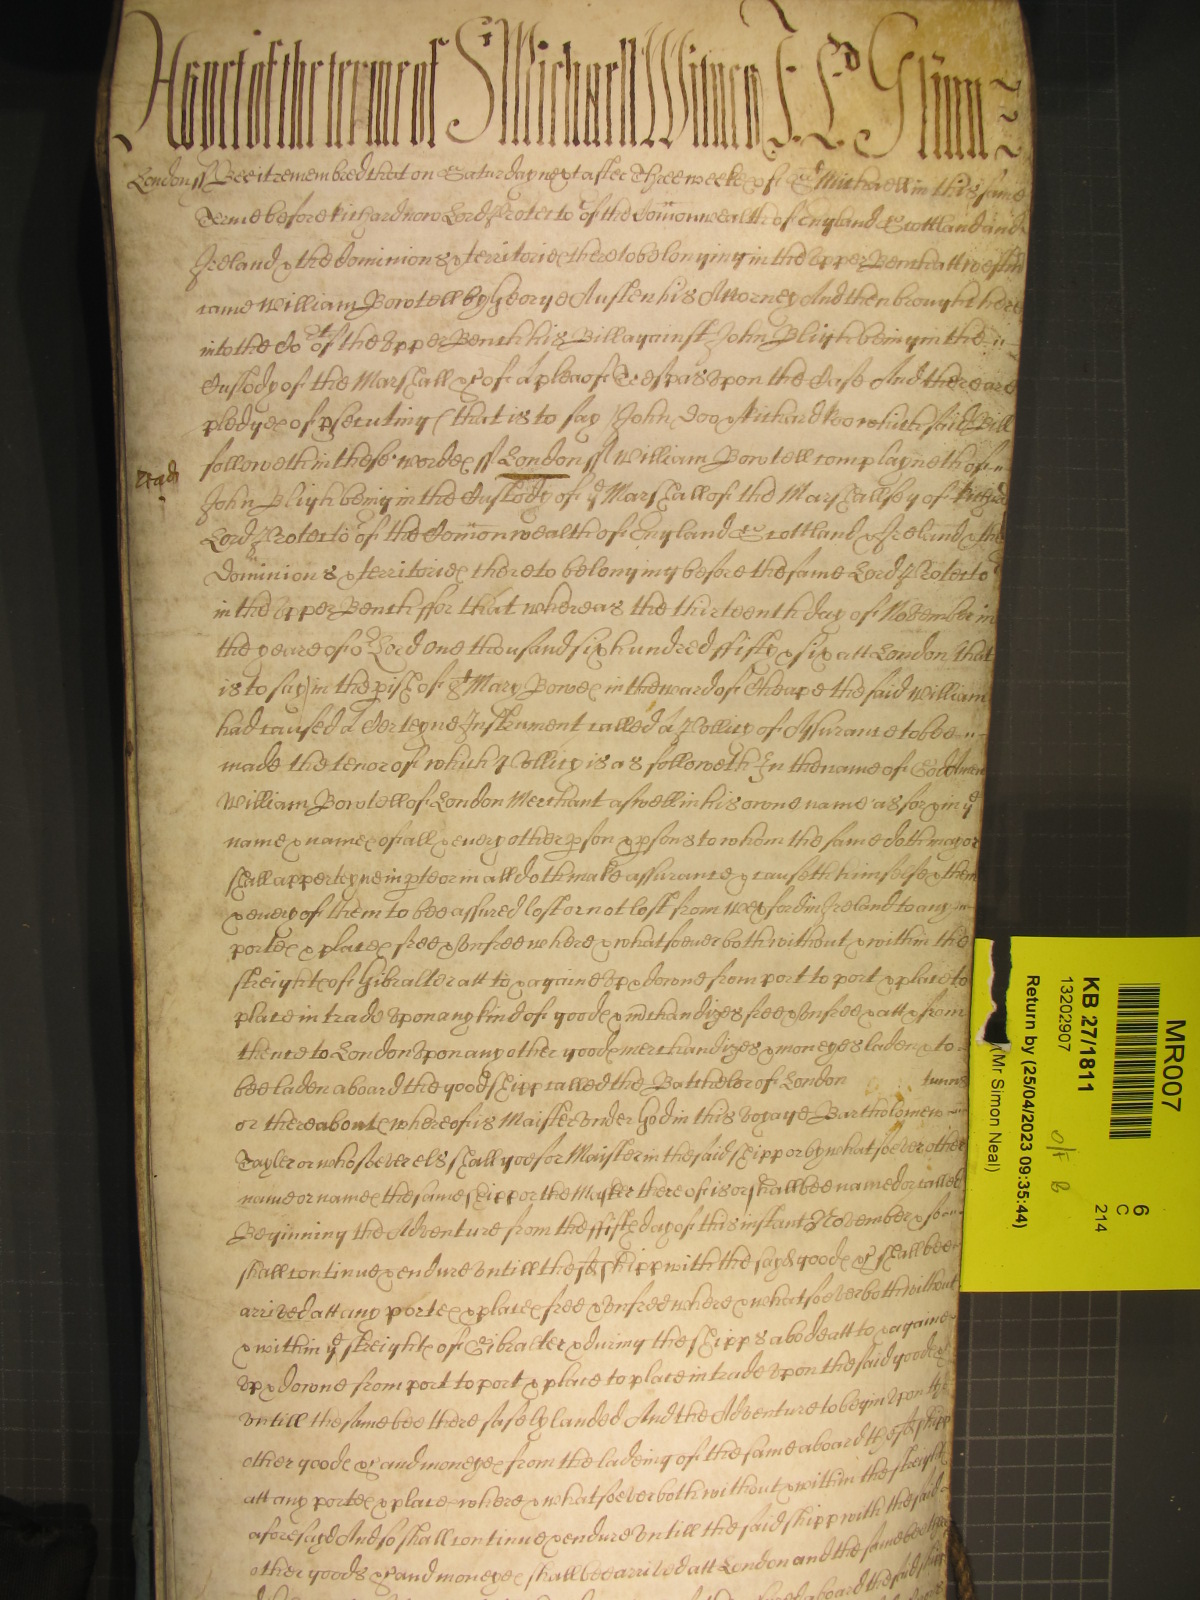 As yet of the terme of St Michaell Witnes J: Ld Glynn
London ss Bee it remembred that on Saturday next after Three weekes of St Michaell in this same
Terme before Richard now Lord Protector of the Comonwealth of England Scottland and
Ireland & the dominions & territories thereto belonging in the upper Bench att Westmr
came William Bowtell by George Austen his Attorney And then brought here
into the Cort of the Upper Bench his Bill against John Bligh being in the
Custody of the Marshall &c of a plea of Trespas upon the Case And there are
pledges of psecuting (that is to say) John Doo & Richard Roo which said Bill
followeth in these wordes ss London ss William Bowtell complayneth of
John Bligh being in the Custody of ye Marshall of the Marshallsey of Richard
Lord Protector of the Comonwealth of England Scottland & Ireland & the
Dominions & territories thereto belonging before the same Lord Protector
in the upper Bench ffor that whereas the thirteenth day of November in
the yeare of or Lord One thousand six hundred fifty & six att London that
is to say in the pish of St Mary Bowe in the ward of Cheape the said William
had caused a Certeyne Instrument called a Pollicy of Assurance to bee
made the tenor of which Pollicy is as followeth In the name of God Amen
William Bowtell of London Merchant aswell in his owne name as for & in ye
name & names of all & every other pson & psons to whom the same doth may or
shall apperteyne in pte or in all doth make assurance & causeth himselfe & them
& every of them to bee assured lost or not lost from Wexford in Ireland to any
portes & places free & unfree where & whatsoever both without & within the
streightes of Gibralter att to & againe up & downe from port to port & place to
place in trade upon any kind of goodes & mchandizes free & unfree & att & from
thence to London upon any other goodes merchandizes & moneyes laden & to
bee laden aboard the good shipp called the Batchelor of London tunns
or thereaboutes whereof is Maister under God in this voyage Bartholomew
Tayler or whosoever els shall goe for Maister in the said shipp or by whatsoever other
name or names the same shipp or the Master thereof is or shall bee named or called
Beginning the Adventure from the fifth day of this instant November & soe
shall continue & endure untill the sd shipp with the sayd goodes &c shall bee
arrived att any portes & places free & unfree where & whatsoever both without
& within ye streightes of Gibralter & during the shipps abode att to & againe
up & downe from port to port & place to place in trade upon the said goodes &c
untill the same bee there safely landed And the Adventure to begin upon the
other goodes &c and moneyes from the ladeing of the same aboard the sd shipp
att any portes & places where & whatsoever both without & within the streightes
aforesayd And so shall continue & endure untill the said shipp with the said
other goods &c and moneyes shall bee arrived att London and the same bee there
MR007
KB 27/1811
13202907
Return by (25/04/2023 09:35:44)
(Mr Simon Neal)
6
C
214
O/F B